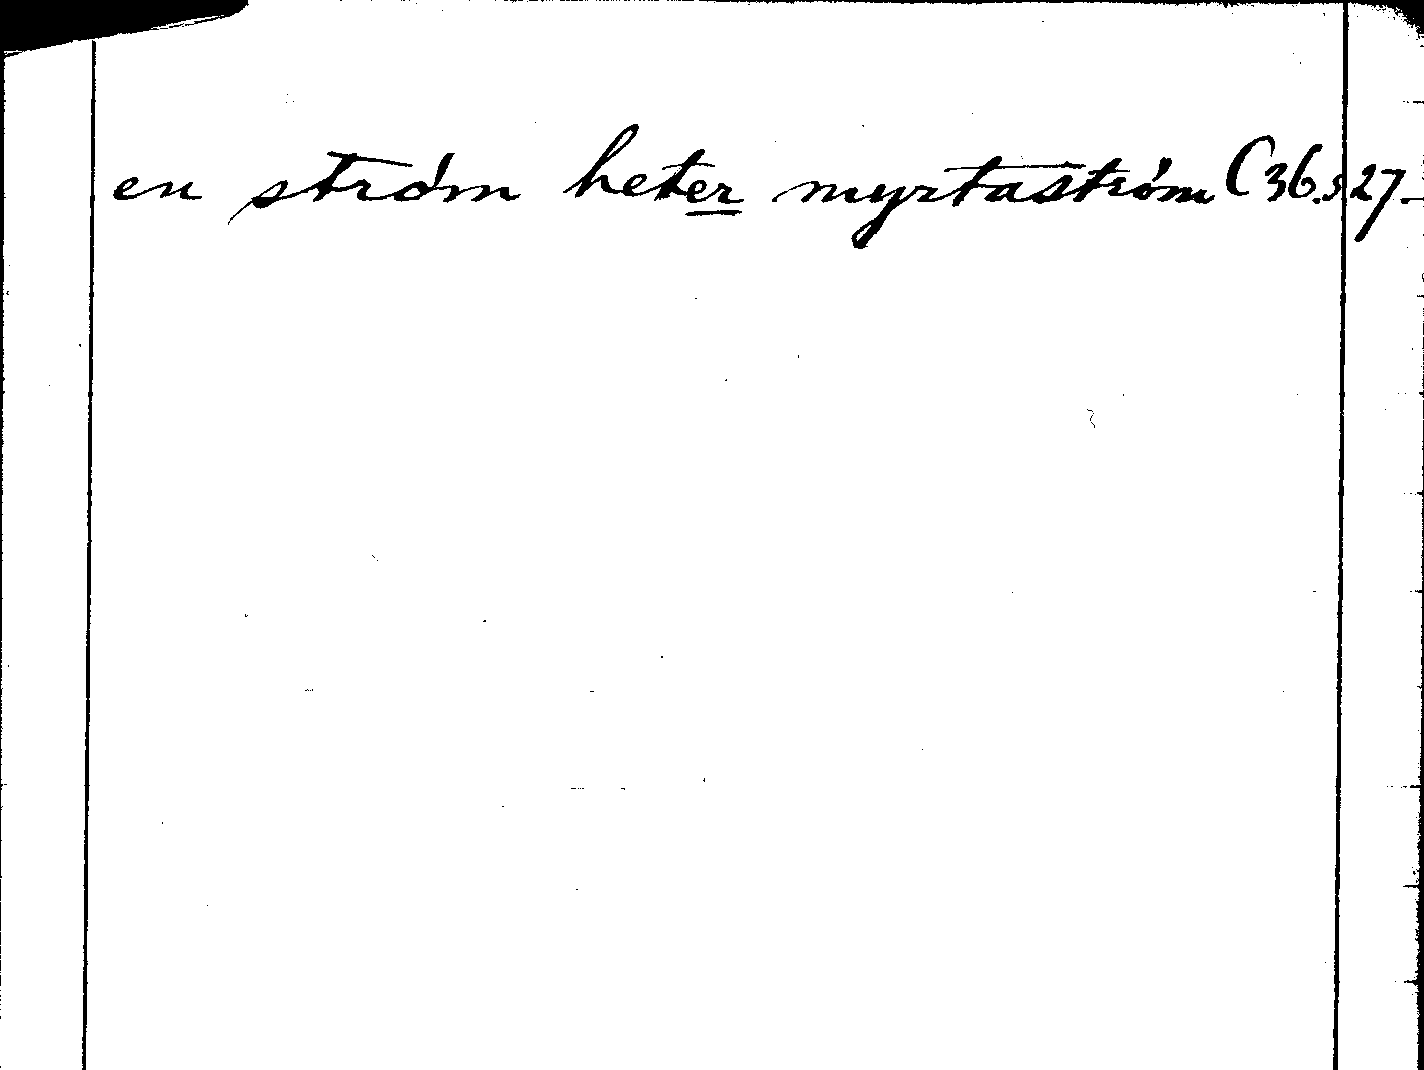 en ström heter myrtaström (36.s 27.-